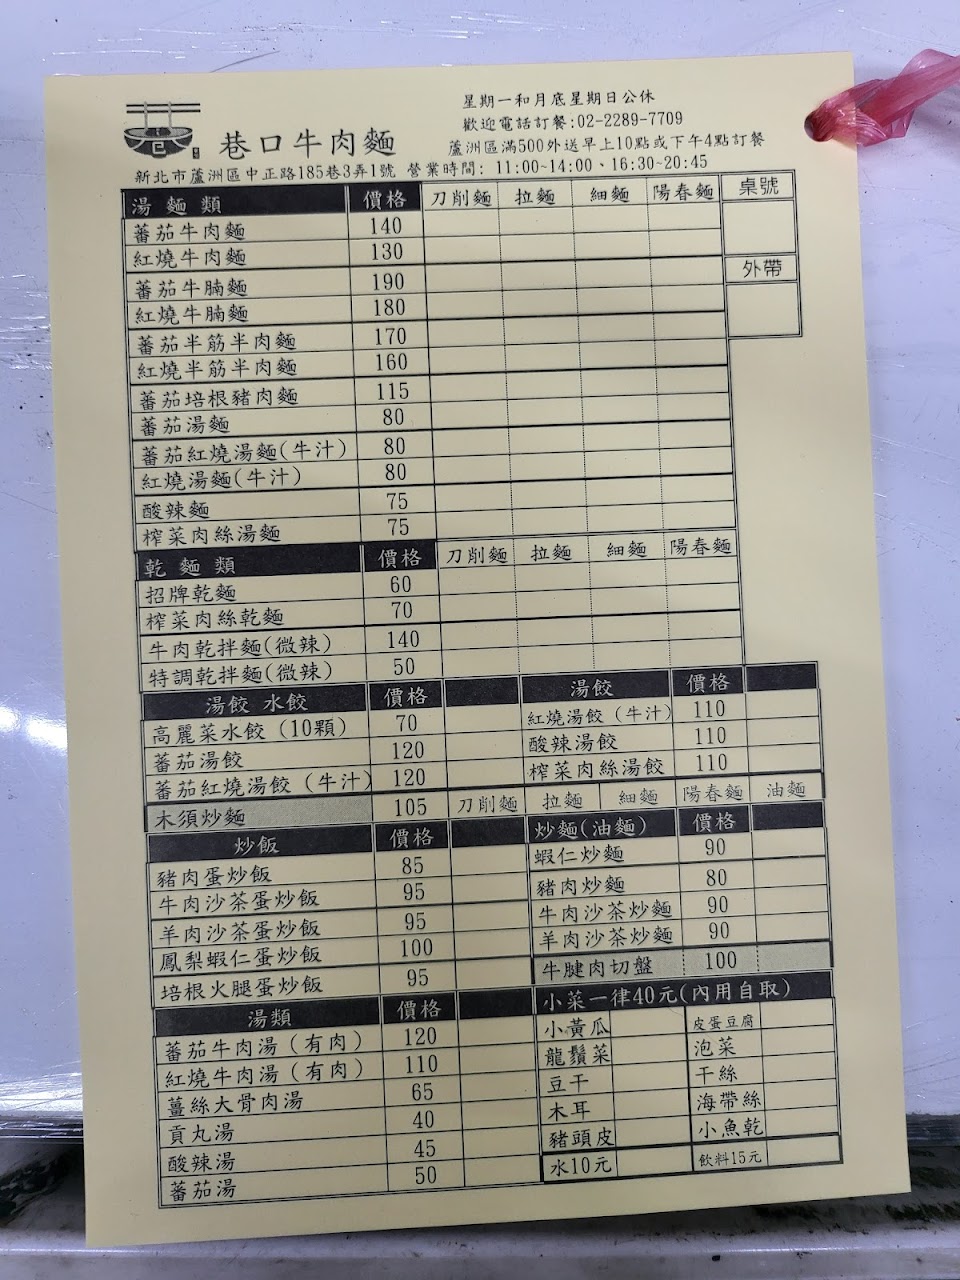 星期一和月底星期日公休
歡迎電話訂餐:02-2289-7709
巷口牛肉麵
蘆洲區滿500外送早上10點或下午4點訂餐
新北市蘆洲區中正路185巷3弄1號 營業時間: 11:00~14:00、16:30~20:45
湯麵類 價格 刀削麵 拉麵 細麵 陽春麵 桌號
蕃茄牛肉麵 140
紅燒牛肉麵 130
外帶
蕃茄牛腩麵 190
紅燒牛腩麵 180
蕃茄半筋半肉麵 170
紅燒半筋半肉麵 160
蕃茄培根豬肉麵 115
蕃茄湯麵 80
蕃茄紅燒湯麵(牛汁) 80
紅燒湯麵(牛汁) 80
酸辣麵 75
榨菜肉絲湯麵 75
乾麵類 價格 刀削麵 拉麵 細麵 陽春麵
招牌乾麵 60
榨菜肉絲乾麵 70
牛肉乾拌麵(微辣) 140
特調乾拌麵(微辣) 50
湯餃 水餃 價格
高麗菜水餃 (10顆) 70
蕃茄湯餃 120
蕃茄紅燒湯餃 (牛汁) 120
湯餃 價格
紅燒湯餃 (牛汁) 110
酸辣湯餃 110
榨菜肉絲湯餃 110
木須炒麵 105 刀削麵 拉麵 細麵 陽春麵 油麵
炒飯 價格
豬肉蛋炒飯 85
牛肉沙茶蛋炒飯 95
羊肉沙茶蛋炒飯 95
鳳梨蝦仁蛋炒飯 100
培根火腿蛋炒飯 95
炒麵(油麵) 價格
蝦仁炒麵 90
豬肉炒麵 80
牛肉沙茶炒麵 90
羊肉沙茶炒麵 90
牛腱肉切盤 100
湯類 價格
蕃茄牛肉湯 (有肉) 120
紅燒牛肉湯 (有肉) 110
薑絲大骨肉湯 65
貢丸湯 40
酸辣湯 45
蕃茄湯 50
小菜一律40元(內用自取)
小黃瓜 皮蛋豆腐
龍鬚菜 泡菜
豆干 干絲
木耳 海帶絲
豬頭皮 小魚乾
水10元 飲料15元